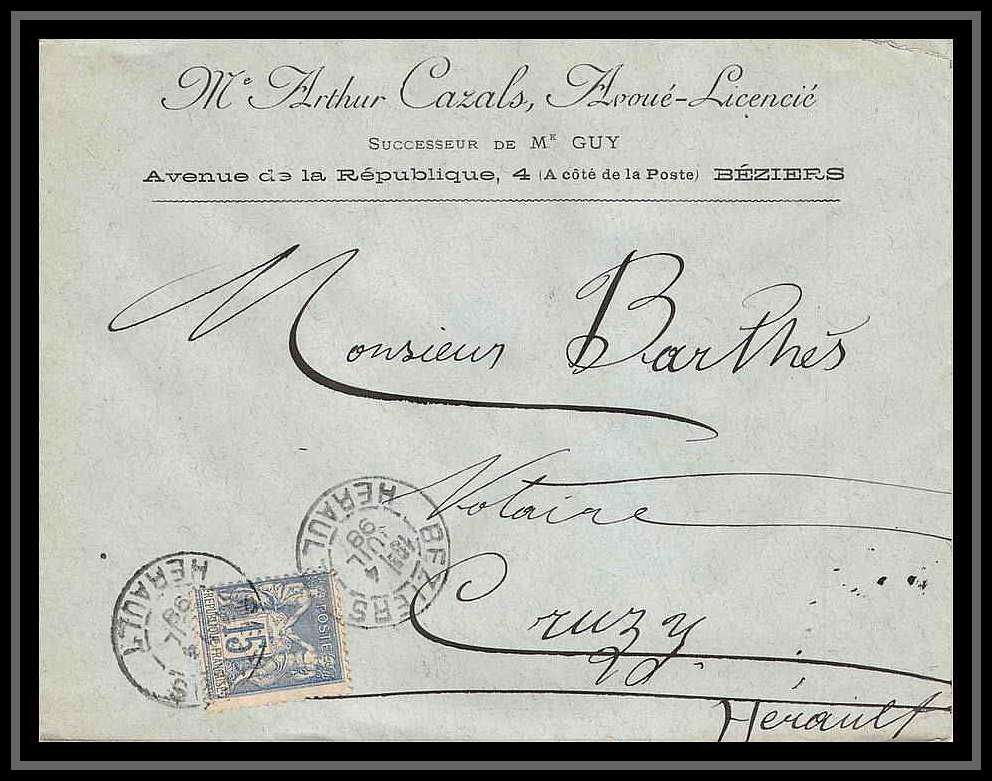 Mᵉ Arthur Cazals, Avoué-Licencié
SUCCESSEUR DE Mᴱ GUY
Avenue de la République, 4 (A côté de la Poste) BÉZIERS
Monsieur Barthès
Notaire
Cruzy
Hérault
BEZIERS
4
JUIL
98
HERAULT
HERAULT
98
POSTES
15
REPUBLIQUE FRANCAISE